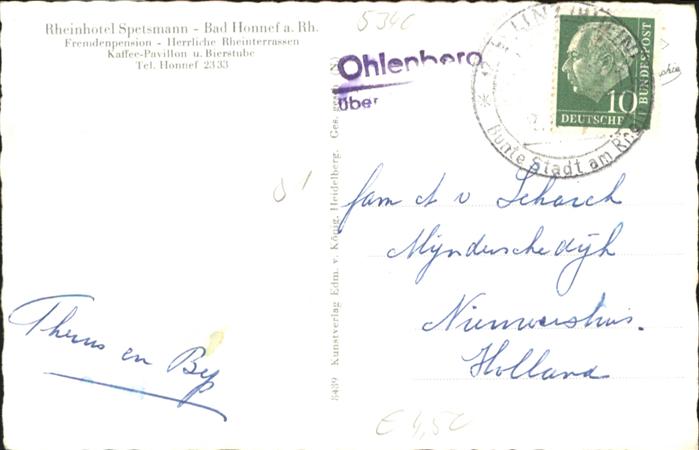 Rheinhotel Spetsmann - Bad Honnef a. Rh.
Fremdenpension - Herrliche Rheinterrassen
Kaffee-Pavillon u. Bierstube
Tel. Honnef 2333
534C
Ohlenberg
über
LINZ (RHEIN)
Bunte Stadt am Rhein
10
DEUTSCHE
BUNDESPOST
8439 Kunstverlag Edm. v. König, Heidelberg. Ges. gesch.
fam A v Scharch
Mijnderschedijk
Nieuwershuis.
Holland
Theus en Bep
€ 4,50